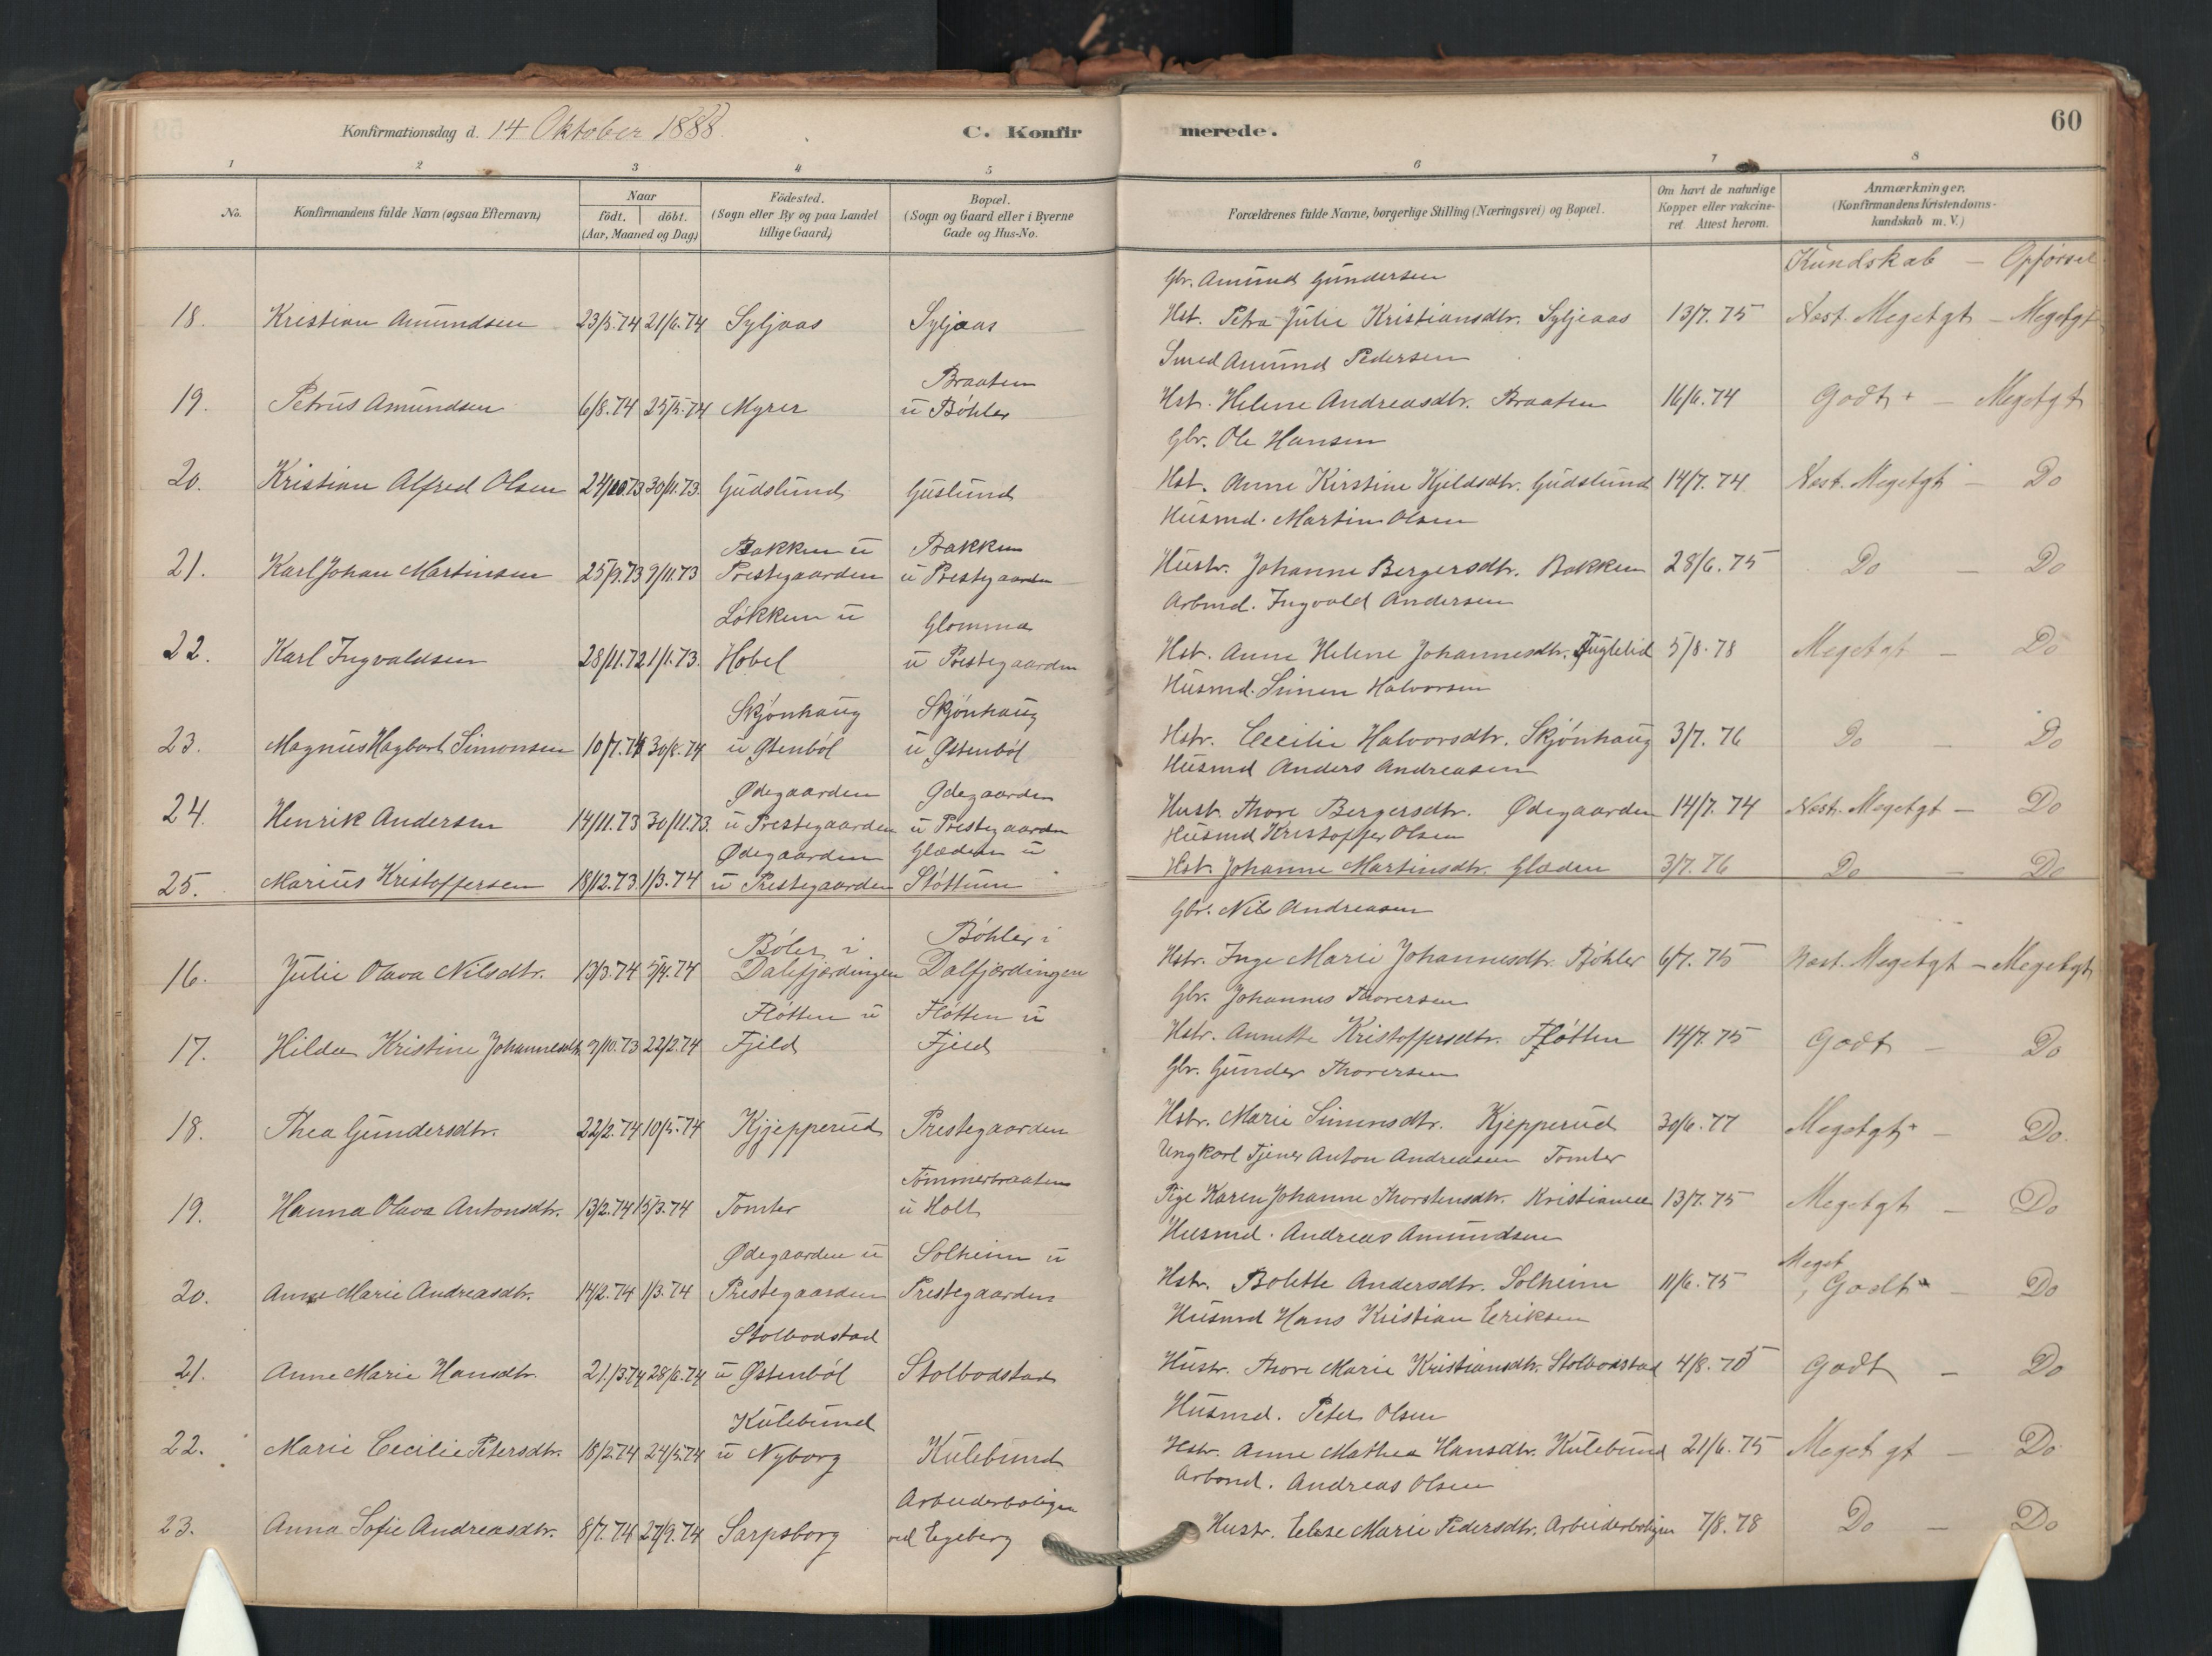 Konfirmationsdag d. 14 Oktober 1888. C. Konfirmerede. 60
1 2 3 4 5 6 7 8
No. Konfirmandens fulde Navn (ogsaa Efternavn) Naar födt. döbt. (Aar, Maaned og Dag) Födested. (Sogn eller By og paa Landet tillige Gaard) Bopæl. (Sogn og Gaard eller i Byerne Gade og Hus-No. Forældrenes fulde Navne, borgerlige Stilling (Næringsvei) og Bopæl. Om havt de naturlige Kopper eller vakcineret Attest herom. Anmærkninger, (Konfirmandens Kristendomskundskab m. V.)
Kundskab - Opførsel
Gbr. Amund Gundersen
18. Kristian Amundsen 23/5.74 21/6.74 Syljaas Syljaas Hst. Petra Julie Kristiansdtr. Syljeaas 13/7.75 Næst. Megetgt - Megetgt
Smed Amund Pedersen
Braaten
19. Petrus Amundsen 6/8.74 25/5.74 Myrer u Bøhler Hst. Helene Andreasdtr. Braaten 16/6.74 Godt + - Megetgt
Gbr. Ole Hansen
20. Kristian Alfred Olsen 24/10.73 30/11.73. Gudslund Guslund Hst. Anne Kirstine Kjeldsdtr. Gudslund 14/7.74 Næst. Megetgt - Do
Husmd. Martin Olsen
Bakken u Bakken
21. Karl Johan Martinsen 25/9.73 9/11.73 Prestegaarden u Prestegaarden Hustr. Johanne Bergersdtr. Bakken 28/6.75 Do - Do
Arbmd. Ingvald Andersen
Løkken u Glomma
22. Karl Ingvaldsen 28/11.72 1/1.73. Hobel u Prestegaarden Hst. Anne Helene Johannesdtr. Fuglelid 5/8.78 Megetgt - Do
Husmd. Simen Halvorsen
Skjønhaug Skjønhaug
23. Magnus Hagbart Simonsen 10/7.74 30/8.74 u Østenbøl u Østenbøl Hstr. Cecilie Halvorsdtr. Skjønhaug 3/7.76 Do - Do
Husmd Anders Andreasen
Ødegaarden Ødegaarden
24. Henrik Andersen 14/11.73 30/11.73. u Prestegaarden u Prestegaarden Hust. Thore Bergersdtr. Ødegaarden 14/7.74 Næst. Megetgt - Do
Husmd Kristoffer Olsen
Ødegaarden Glæden u
25. Marius Kristoffersen 18/12.73 1/3.74 u Prestegaarden Støttum Hst. Johanne Martinsdtr. Glæden 3/7.76 Do - Do
Gbr. Nils Andreasen
Bøler i Bøhler i
16. Julie Olava Nilsdtr. 13/3.74 5/4.74 Dalefjerdingen Dalfjerdingen Hstr. Inge Marie Johannesdtr. Bøhler 6/7.75 Næst. Megetgt - Megetgt
Gbr. Johannes Thoversen
Fløtten u Fløtten u
17. Hilda Kristine Johannesdtr. 9/10.73 22/2.74 Fjeld Fjeld Hstr. Annette Kristoffersdtr. Fløtten 14/7.75 Godt - Do
Gbr. Gunder Thoversen
18. Thea Gundersdtr. 22/2.74 10/5.74 Kjepperud Prestegaarden Hstr. Marie Simensdtr. Kjepperud 30/6.77 Megetgt+ - Do.
Ungkarl Tjener Anton Andreasen Tomter
Tømmerbraaten
19. Hanna Olava Antonsdtr. 13/2.74 15/3.74 Tomter u Holt Pige Karen Johanne Thorstensdtr. Kristiania 13/7.75 Megetgt - Do
Husmd. Andreas Amundsen
Ødegaarden u Solheim u Meget
20. Anne Marie Andreasdtr. 14/2.74 1/3.74 Prestegaarden Prestegaarden Hstr. Bolette Andersdtr. Solheim 11/6.75 Godt - Do
Husmd Hans Kristian Eriksen
Stolbodstad
21. Anne Marie Hansdtr. 21/3.74 28/6.74 u Østenbøl Stolbodstad Hustr. Thore Marie Kristiansdtr. Stolbodstad 4/8.75 Godt - Do
Husmd. Peter Olsen
Kulebund
22. Marie Cecilie Petersdtr. 18/2.74 24/5.74 u Nyborg Kulebund Hstr. Anne Mathea Hansdtr. Kulebund 21/6.75 Meget gt - Do
Arbmd. Andreas Olsen
Arbeiderboligen
23. Anna Sofie Andreasdtr. 8/7.74 27/9.74 Sarpsborg ved Egeberg Hustr. Elise Marie Pedersdtr. Arbeiderboligen 7/8.78 Do - Do